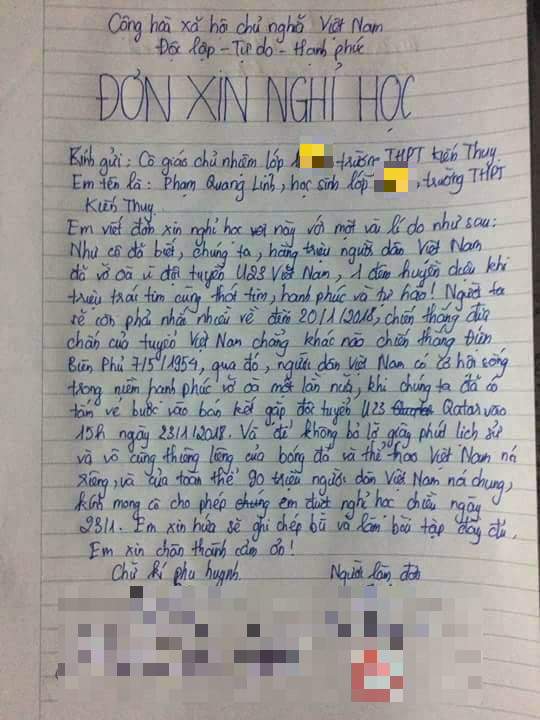 Cộng hòa xã hội chủ nghĩa Việt Nam
Độc lập - Tự do - Hạnh phúc
ĐƠN XIN NGHỈ HỌC
Kính gửi: Cô giáo chủ nhiệm lớp 1 trường THPT Kiến Thụy
Em tên là: Phạm Quang Linh, học sinh lớp , trường THPT
Kiến Thụy
Em viết đơn xin nghỉ học này với một vài lí do như sau:
Như cô đã biết, chúng ta, hàng triệu người dân Việt Nam
đã vỡ òa vì đội tuyển U23 Việt Nam, 1 đêm huyền diệu khi
triệu trái tim cùng thót tim, hạnh phúc và tự hào! Người ta
sẽ còn phải nhắc nhiều về đêm 20/1/2018, chiến thắng địa
chấn của tuyển Việt Nam chẳng khác nào chiến thắng Điện
Biên Phủ 7/5/1954, qua đó, người dân Việt Nam có cơ hội sống
trong niềm hạnh phúc vỡ òa một lần nữa, khi chúng ta đã có
tấm vé bước vào bán kết gặp đội tuyển U23 Qatar vào
15h ngày 23/1/2018. Và để không bỏ lỡ giây phút lịch sử
và vô cùng thiêng liêng của bóng đá và thể thao Việt Nam nói
riêng, và của toàn thể 90 triệu người dân Việt Nam nói chung,
kính mong cô cho phép chúng em được nghỉ học chiều ngày
23/1. Em xin hứa sẽ ghi chép bù và làm bài tập đầy đủ.
Em xin chân thành cảm ơn!
Chữ kí phụ huynh
Người làm đơn